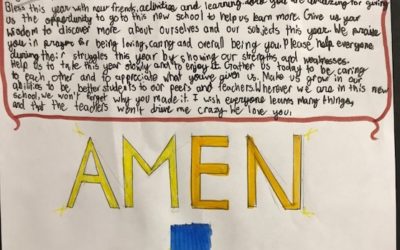 Bless this year with our friends, activities and learning. Thank you for giving
us the opportunity to go to this new school to help us learn more. Give us your
wisdom to discover more about ourselves and our subjects this year. We praise
you in prayer for being loving, caring and overall being you. Please help everyone
during their struggles this year by showing our strengths and weaknesses.
Help us to take this year slowly and to enjoy it. Gather us today to be caring
to each other and to appreciate what you've given us. Make us grow in our
abilities to be better students to our peers and teachers. Wherever we are in this new
school, we won't forget why you made it. I wish everyone learns many things,
and that the teachers won't drive me crazy. We love you,
AMEN